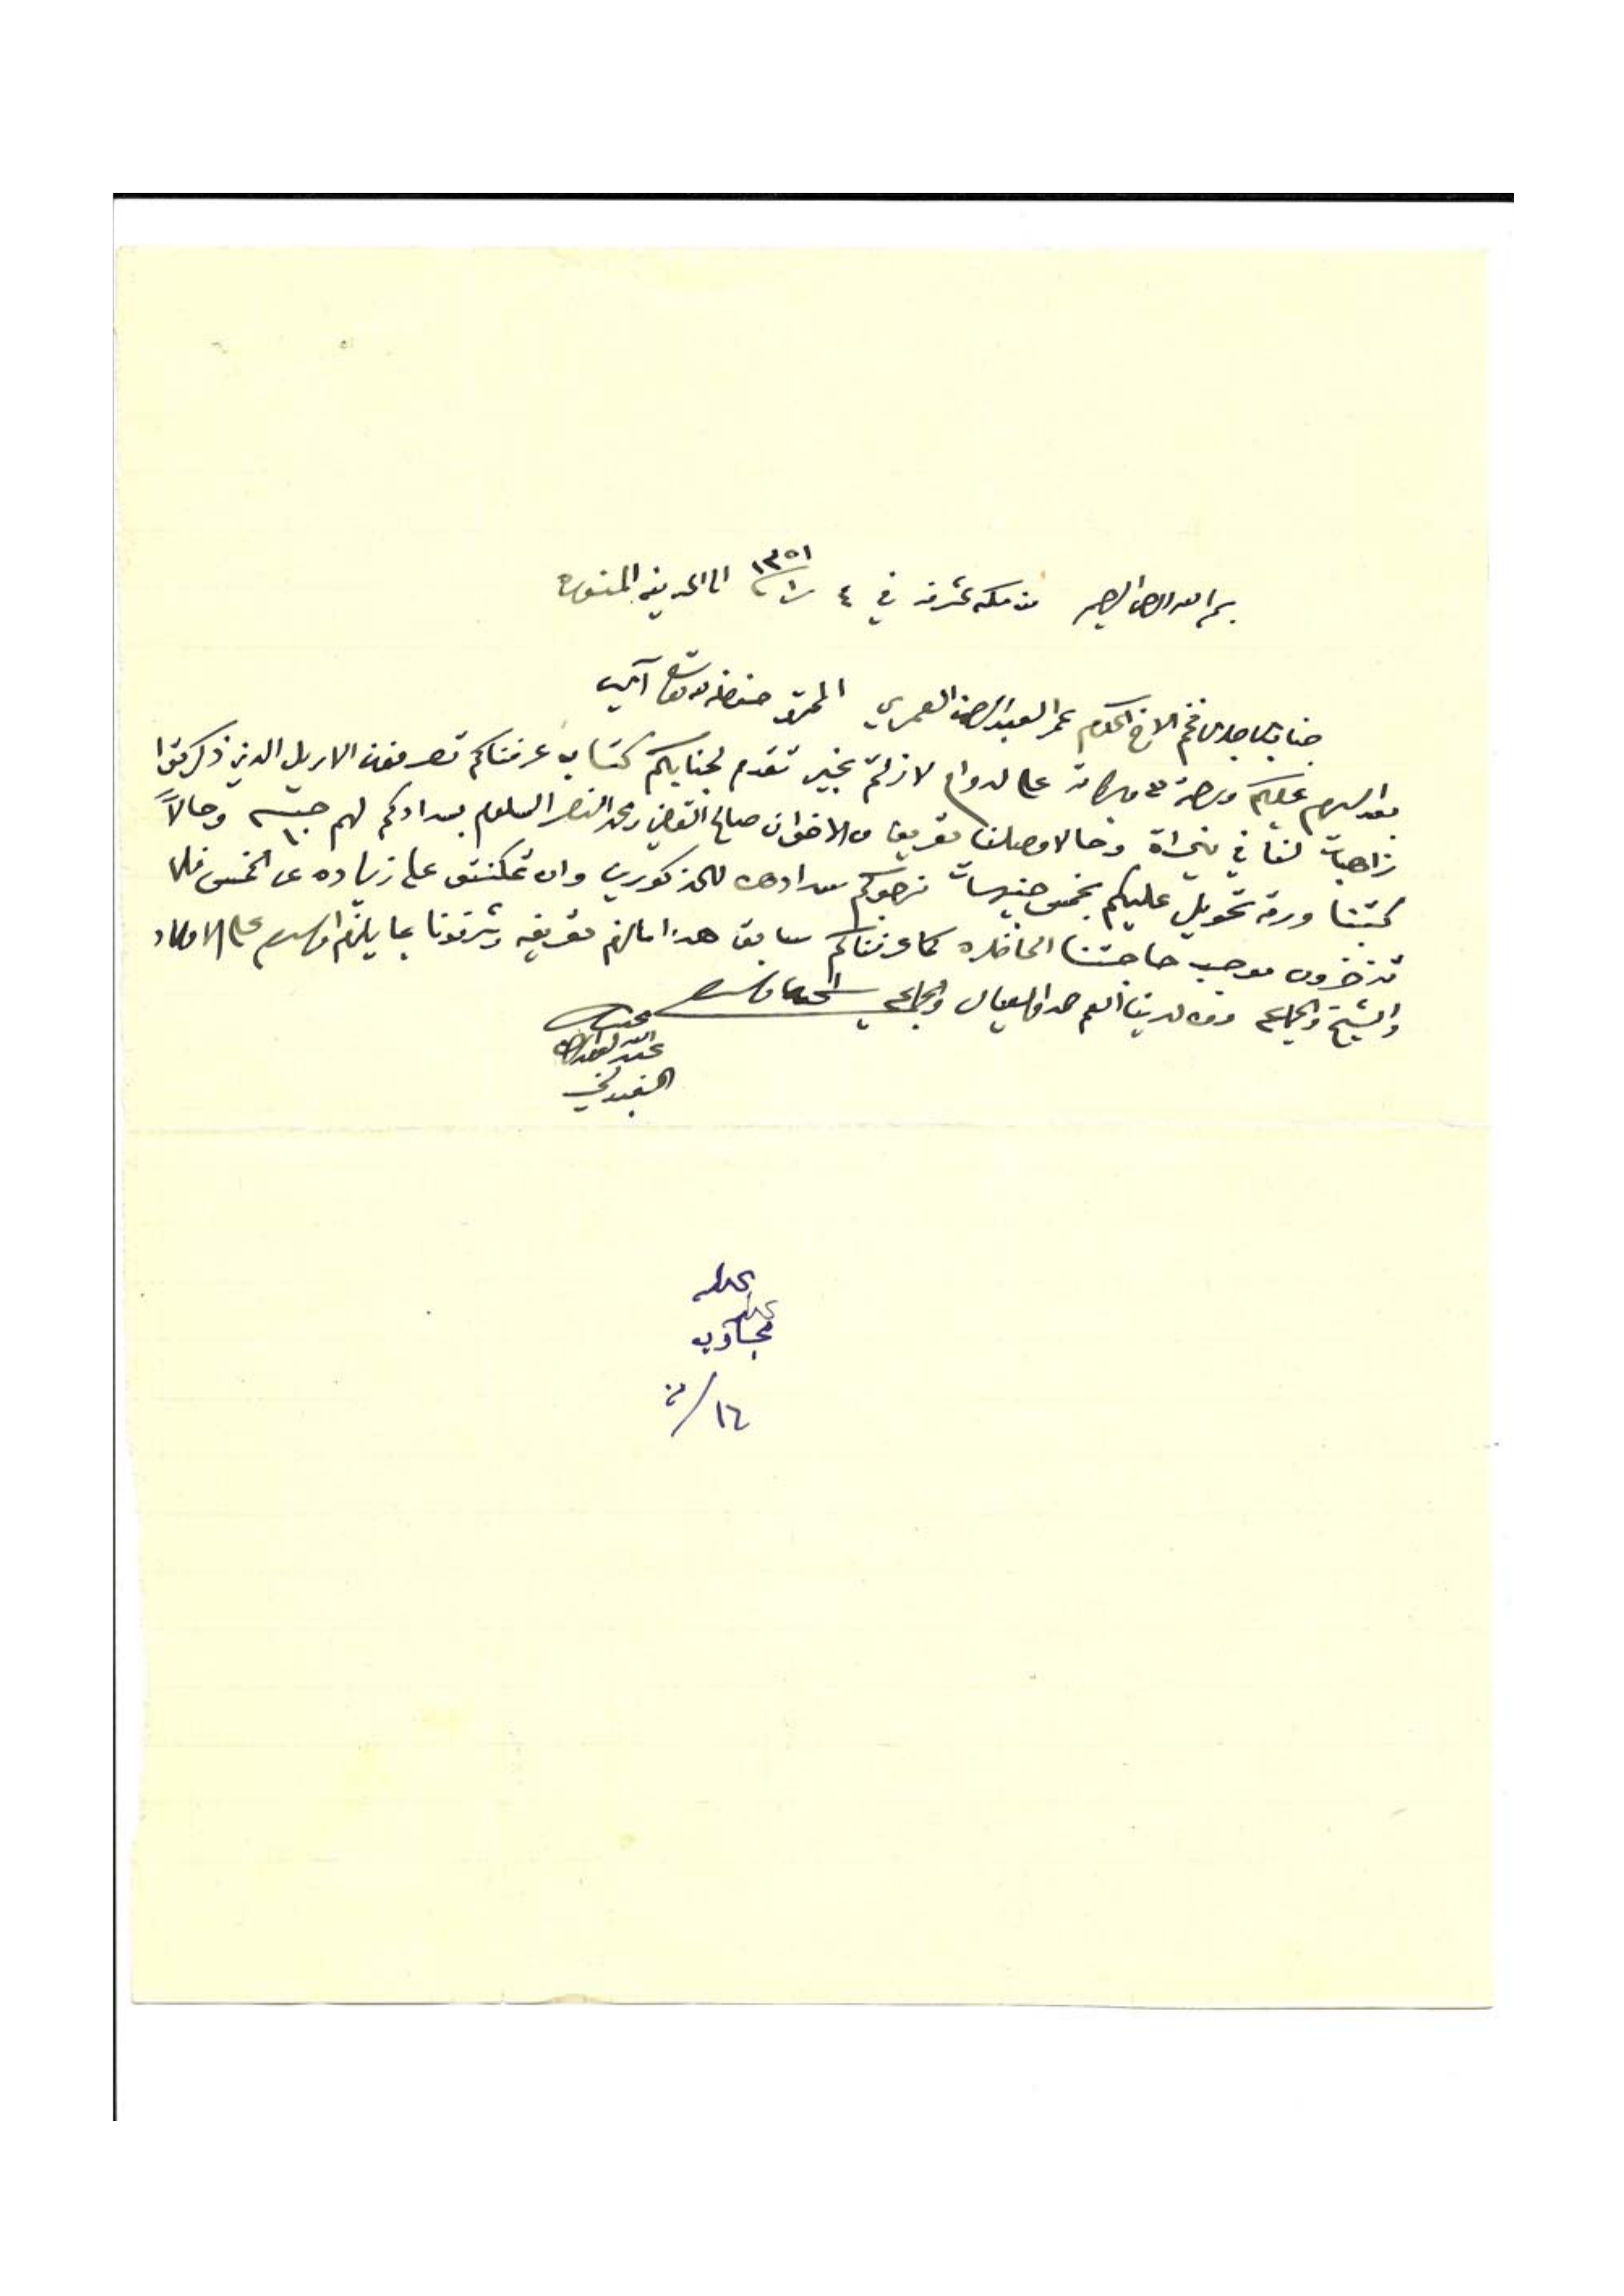 بسم الله الرحمن الرحيم من مكه المشرفه في ٤ ١٣٥١ الى المدينه المنوره
جناب الاجل الافخم الاخ المكرم عمر العبدالرحمن العمري المحترم حفظه الله تعالى آمين
بعد السلام عليكم ورحمة الله وبركاته على الدوام لا زلتم بخير تقدم لجنابكم كتاب عرفناكم تصرفون الاريل الذين ذكرتوا
زاهبات لنا في وحالا وصلنا تعريف من الاخوان صالح القاضي ومحمد النصر السلوم بسدادكم لهم ١٠ جنيه وحالاً
كتبنا ورقة تحويل عليكم بخمس جنيهات نرجوكم سدادهن للمذكورين وان تمكنتو على زياده عن الخمس فلا
تذخرون موجب حاجتنا الحاضره كما عرفناكم سابق هذا مالزم تعريفه وشرفونا بما يلزم والسلام على الاولاد
والشيخ والجماعه ومن لدينا العم حمد والعيال والجماعه والسلام
محبكم
عبدالله
مجاوب
١٦